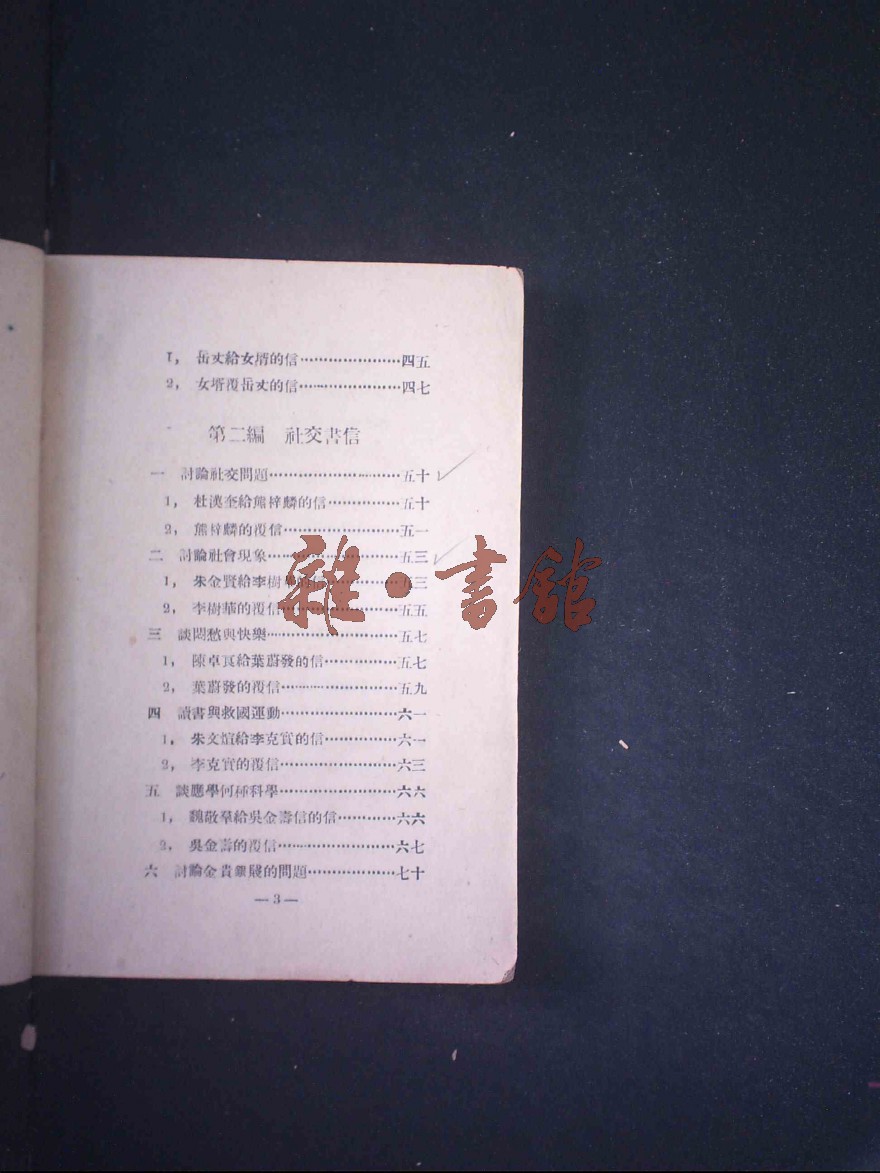 1，岳丈給女壻的信…………………四五
2，女壻覆岳丈的信…………………四七
第二編 社交書信
一 討論社交問題………………………五十
1，杜漢奎給熊梓麟的信……………五十
2，熊梓麟的覆信……………………五一
二 討論社會現象………………………五三
1，朱金賢給李樹華的信……………五三
2，李樹華的覆信……………………五五
三 談悶愁與快樂………………………五七
1，陳卓 給葉蔚發的信……………五七
2，葉蔚發的覆信……………………五九
四 讀書與救國運動……………………六一
1，朱文煊給李克實的信……………六一
2，李克實的覆信……………………六三
五 談應學何種科學……………………六六
1，魏敬羣給吳金壽信的信…………六六
2，吳金壽的覆信……………………六七
六 討論金貴銀賤的問題………………七十
—3—
雜·書館